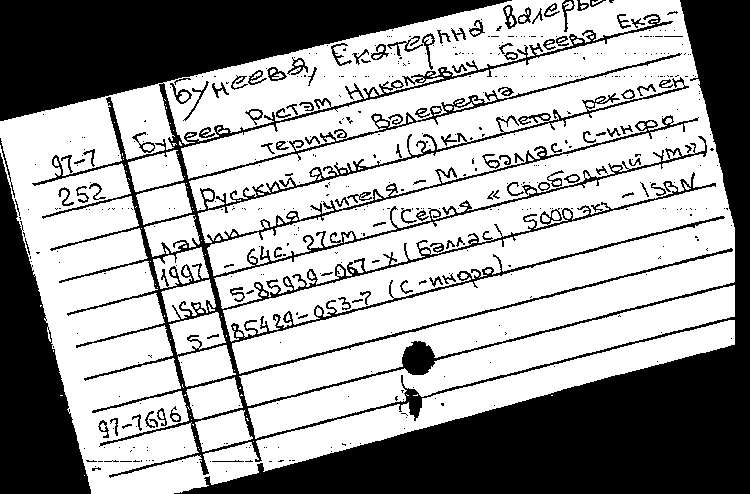 Бунеева, Екатерина Валерье
97-7
252
Бунеев, Рустэм Николаевич, Бунеева, Ека-
терина Валерьевна
Русский язык: 1(2) кл.: Метод. рекомен
дации для учителя. - М.: Баллас: С-инфо,
1997 - 64с; 27см. - (Серия «Свободный ум»).
ISBN 5-85939-067-х (Баллас), 5000 экз - ISBN
5-85429-053-7 (С-инфо).
97-7696